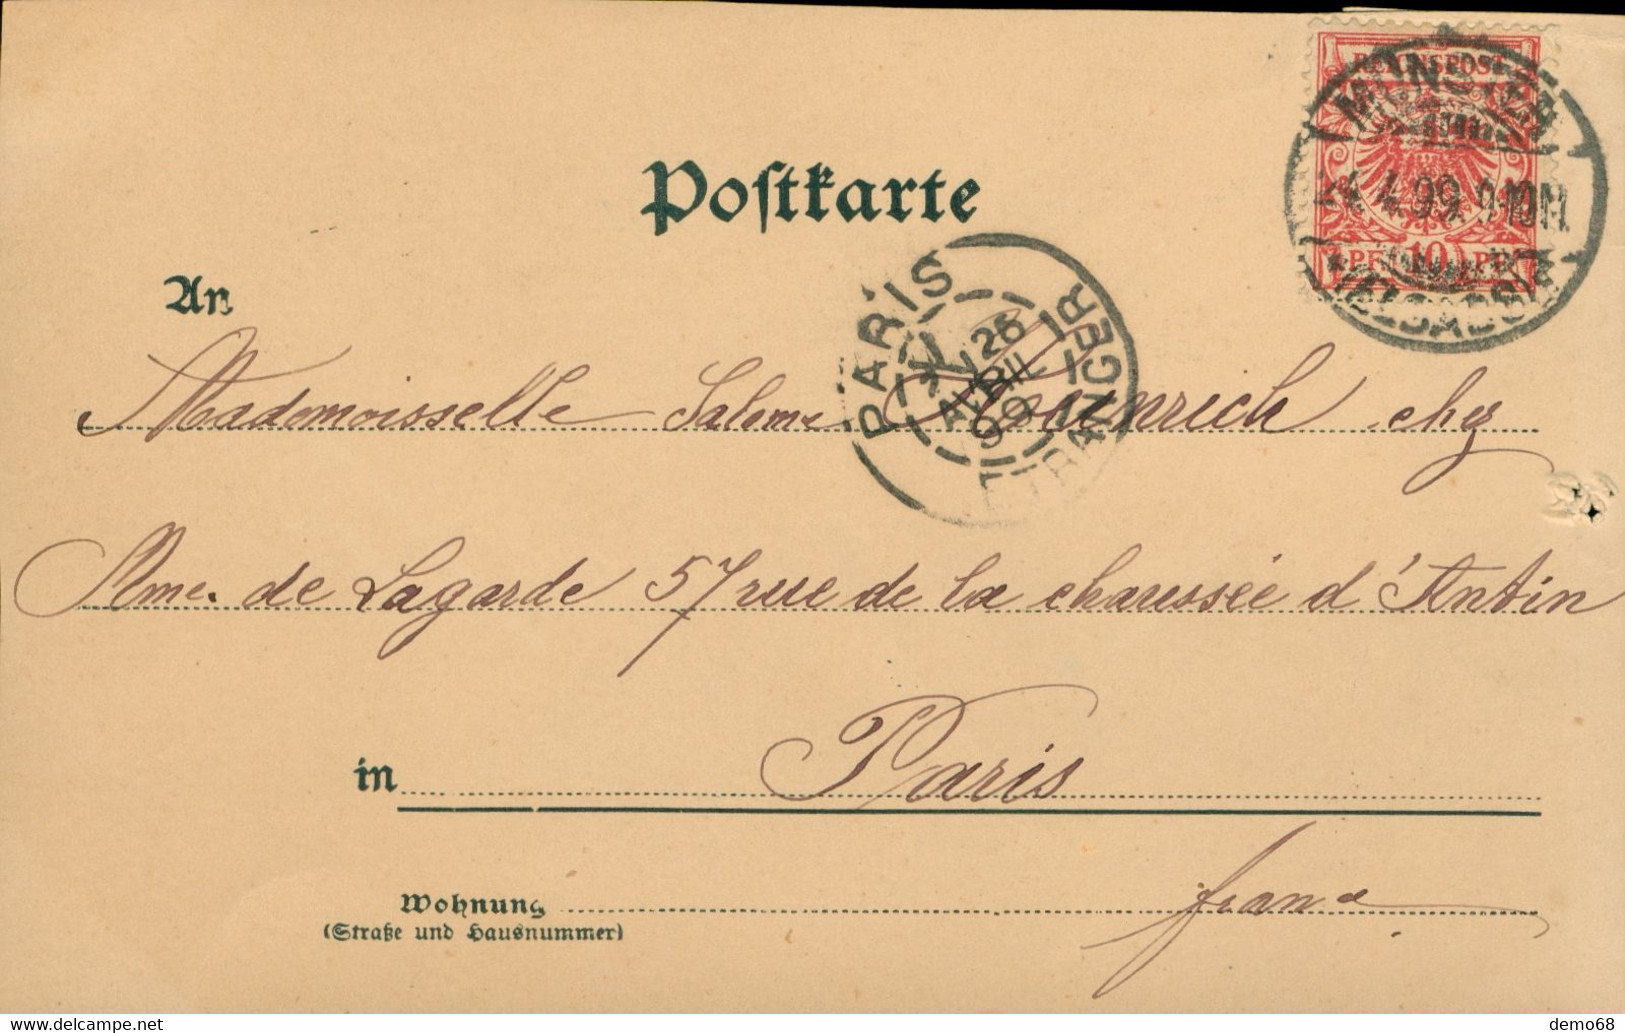 REICHSPOST
MÜNSTER
4.99. 9-10N
10
PF PF
(ELSASS)
Postkarte
PARIS
26
AVRIL
99
ETRANGER
An
Mademoiselle Salome Heinrich chez
Mme. de Lagarde 57 rue de la chaussée d'Antin
in Paris
Wohnung france
(Straße und Hausnummer)
demo68